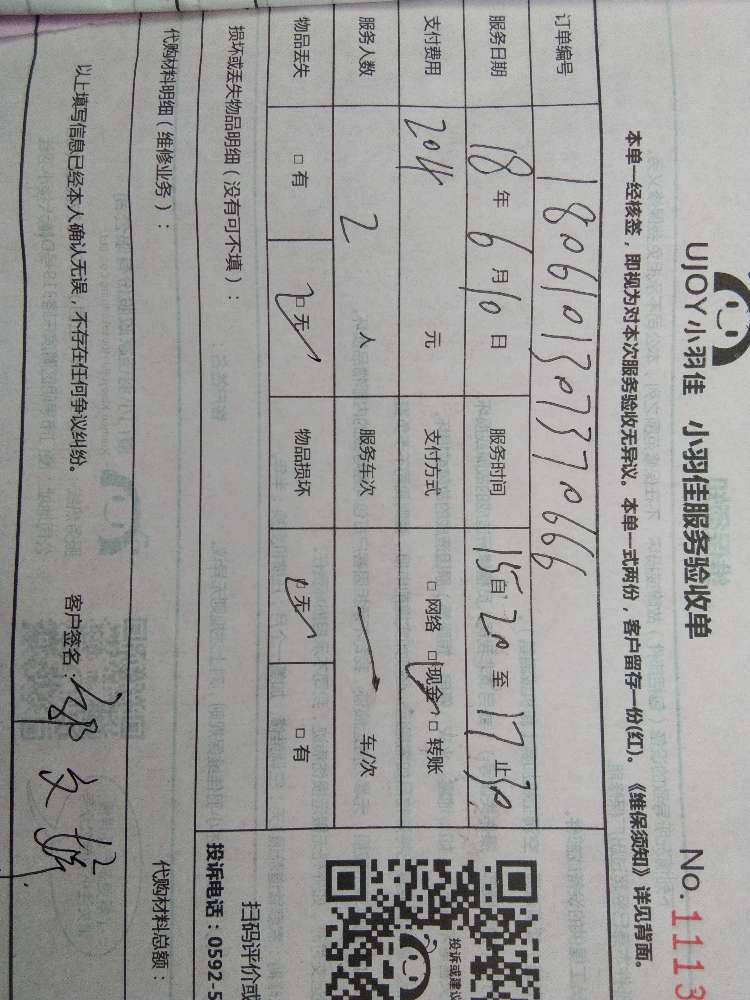 UJOY小羽佳 小羽佳服务验收单 No. 1113
本单一经核签，即视为对本次服务验收无异议。本单一式两份，客户留存一份(红)。《维保须知》详见背面。
订单编号 18061013073770666
服务日期 18年6月10日 服务时间 15自20至17止30
支付费用 204 元 支付方式 □网络 □现金 □转账
服务人数 2 人 服务车次 车/次
物品丢失 □有 □无 物品损坏 □无 □有
损坏或丢失物品明细（没有可不填）：
代购材料明细（维修业务）： 代购材料总额：
以上填写信息已经本人确认无误，不存在任何争议纠纷。 客户签名：
投诉或建议
扫码评价或
投诉电话：0592-5